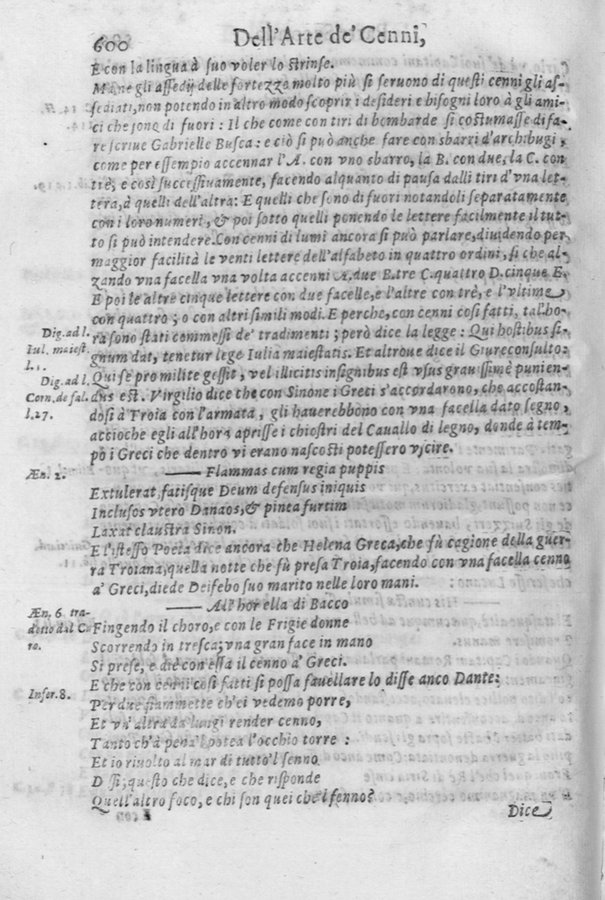 600 Dell'Arte de' Cenni,
E con la lingua à suo voler lo strinse.
Ma ne gli assedij delle fortezze molto più si seruono di questi cenni gli as-
sediati, non potendo in altro modo scoprir i desideri e bisogni loro à gli ami-
ci che sono di fuori : Il che come con tiri di bombarde si costumasse di fa-
re scriue Gabrielle Busca : e ciò si può anche fare con sbarri d'archibugi,
come per essempio accennar l'A. con vno sbarro, la B. con due, la C. con
trè, e così successiuamente, facendo alquanto di pausa dalli tiri d'vna let-
tera, à quelli dell'altra: E quelli che sono di fuori notandoli separatamente
con i loro numeri, & poi sotto quelli ponendo le lettere facilmente il tut-
to si può intendere. Con cenni di lumi ancora si può parlare, diuidendo per
maggior facilità le venti lettere dell'alfabeto in quattro ordini, si che al-
zando vna facella vna volta accenni A. due B. tre C. quattro D. cinque E.
E poi le altre cinque lettere con due facelle, e l'altre con trè, e l'vltime
con quattro ; o con altri simili modi. E perche, con cenni così fatti, tal'ho-
Dig. ad l. ra sono stati commessi de' tradimenti ; però dice la legge : Qui hostibus si-
Iul. maiest. gnum dat, tenetur lege Iulia maiestatis. Et altroue dice il Giureconsulto:
l.1. Qui se pro milite gessit, vel illicitis insignibus est vsus grauissimè punien-
Dig. ad l. Corn. de fal. dus est. Virgilio dice che con Sinone i Greci s'accordarono, che accostan-
l.27. dosi à Troia con l'armata, gli hauerebbono con vna facella dato segno,
accioche egli all'hora aprisse i chiostri del Cauallo di legno, donde à tem-
po i Greci che dentro vi erano nascosti potessero vscire.
Æn. 2. —— Flammas cum regia puppis
Extulerat, fatisque Deum defensus iniquis
Inclusos vtero Danaos, & pinea furtim
Laxat claustra Sinon.
E l'istesso Poeta dice ancora che Helena Greca, che fù cagione della guer-
ra Troiana, quella notte che fù presa Troia, facendo con vna facella cenno
a' Greci, diede Deifebo suo marito nelle loro mani.
Æn. 6. tra- —— All'hor ella di Bacco
dotto dal Ca- Fingendo il choro, e con le Frigie donne
ro. Scorrendo in tresca; vna gran face in mano
Si prese, e diè con essa il cenno à Greci.
E che con cenni così fatti si possa fauellare lo disse anco Dante:
Infer. 8. Per due fiammette ch'ci vedemo porre,
Et vn' altra da lungi render cenno,
Tanto ch'à pena'l potea l'occhio torre :
Et io riuolto al mar di tutto'l senno
D ssi; questo che dice, e che risponde
Quell'altro foco, e chi son quei che'l fenno?
Dice